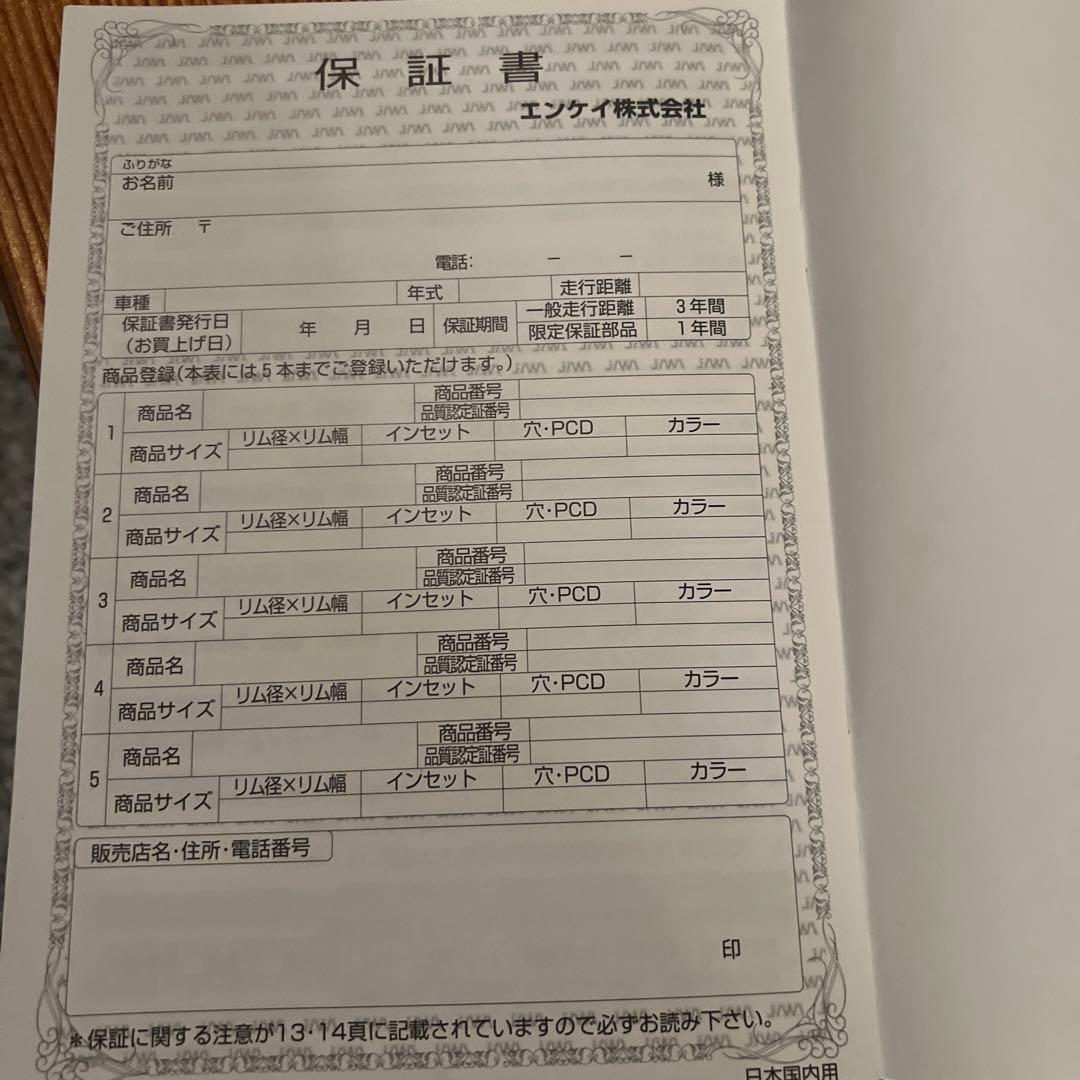 保証書
エンケイ株式会社
ふりがな
お名前 様
ご住所 〒
電話: － －
車種 年式 走行距離
保証書発行日 (お買上げ日) 年 月 日 保証期間 一般走行距離 3年間
限定保証部品 1年間
商品登録(本表には5本までご登録いただけます。)
1 商品名 商品番号
品質認定証番号
商品サイズ リム径×リム幅 インセット 穴・PCD カラー
2 商品名 商品番号
品質認定証番号
商品サイズ リム径×リム幅 インセット 穴・PCD カラー
3 商品名 商品番号
品質認定証番号
商品サイズ リム径×リム幅 インセット 穴・PCD カラー
4 商品名 商品番号
品質認定証番号
商品サイズ リム径×リム幅 インセット 穴・PCD カラー
5 商品名 商品番号
品質認定証番号
商品サイズ リム径×リム幅 インセット 穴・PCD カラー
販売店名・住所・電話番号
印
*保証に関する注意が13・14頁に記載されていますので必ずお読み下さい。
日本国内用